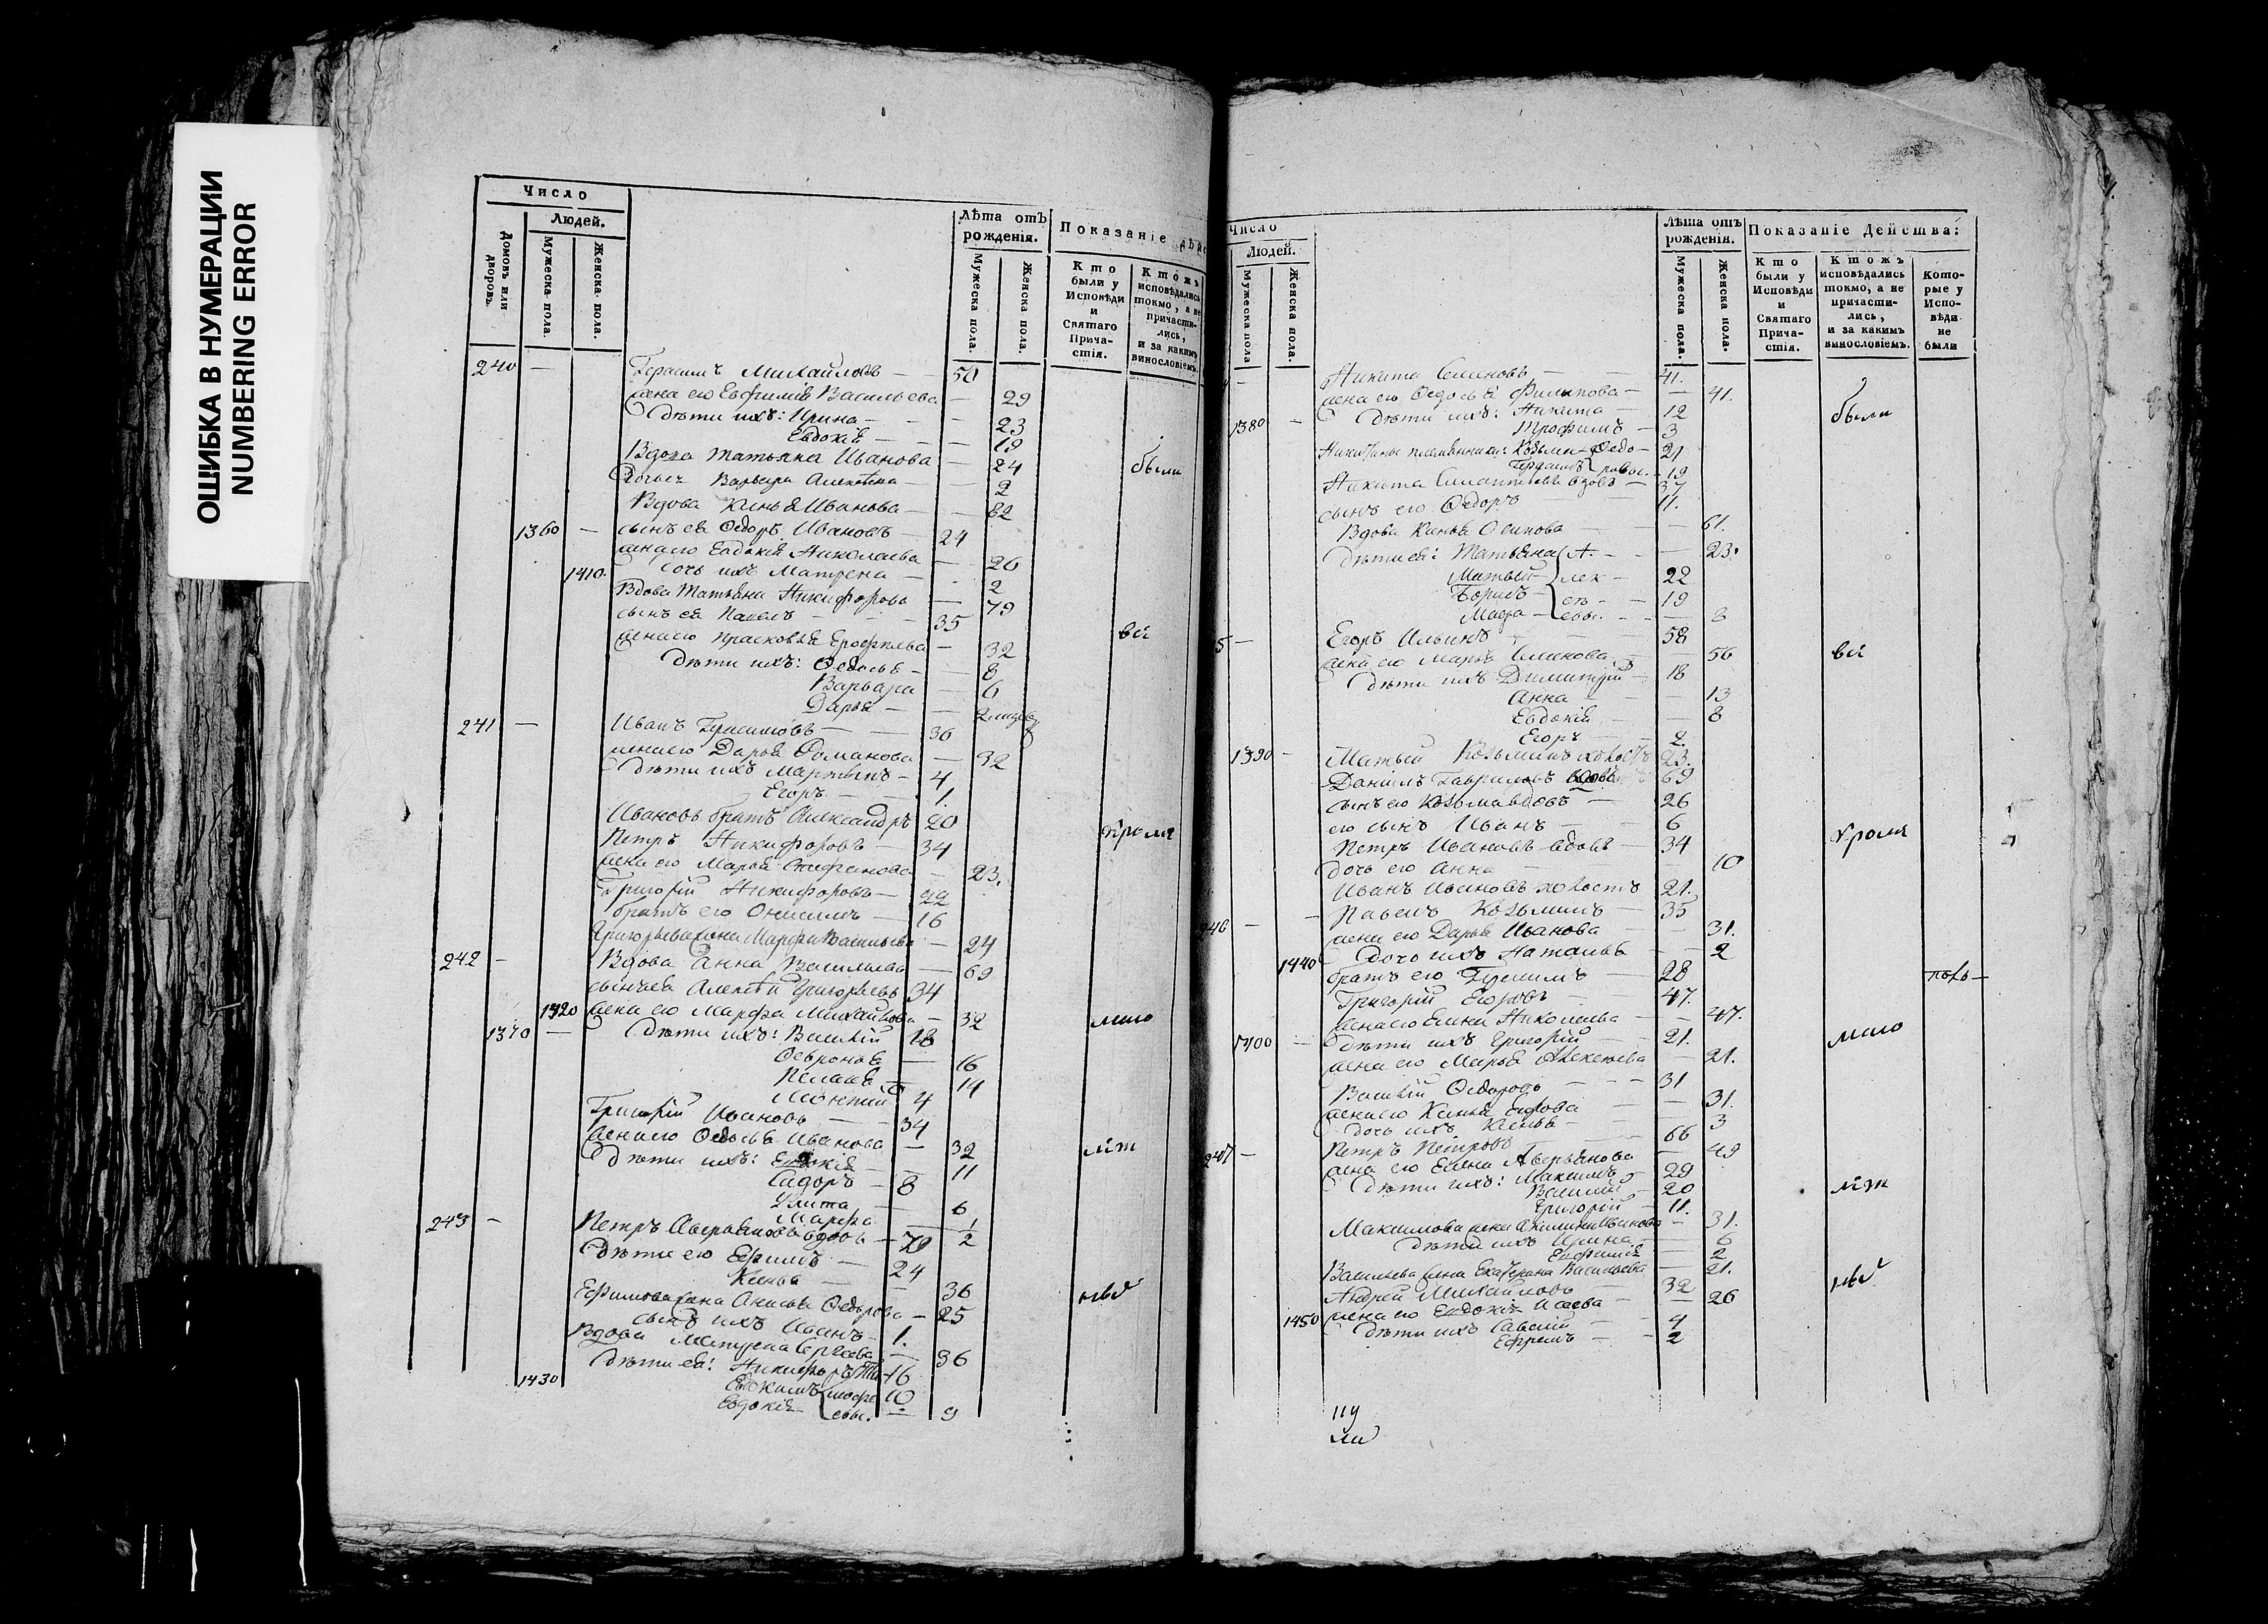 ОШИБКА В НУМЕРАЦИИ
NUMBERING ERROR
Число
Людей.
Домовъ или дворовъ.
Мужеска пола.
Женска пола.
Лѣта отъ рожденія.
Мужеска пола.
Женска пола.
Показаніе
Кто были у Исповѣди и Святаго Прича-стія.
Ктожъ исповѣдались токмо, а не причасти-лись, и за какимъ винословіемъ.
240 — Герасимъ Михайловъ — 50
жена его Евфимія Васильева — 29
дѣти ихъ: Ирина — 23
Евдокія — 19
Вдова Татьяна Иванова — 24
были
дочь Варвара — 2
Вдова Иванова — 62
1360 — сынъ ея Ѳедоръ Ивановъ — 24
жена его Евдокія Николаева — 26
1410. дочь ихъ Матрена — 2
Вдова Татьяна Никифорова — 79
сынъ ея Павелъ — 35
всѣ
жена его Прасковья Ерофѣева — 32
дѣти ихъ: Ѳедосья — 8
Варвара — 6
Дарья — 2
241 — Иванъ Герасимовъ — 36
жена его Дарья Романова — 32
дѣти ихъ Мартынъ — 4
Егоръ — 1.
Ивановъ братъ Александръ 20
кромѣ
Петръ Никифоровъ — 34
жена его Марья Стефанова — 23.
Григорій Никифоровъ — 22
братъ его Онисимъ — 16
Григорьева жена Марфа Васильева — 24
242 — Вдова Анна Васильева — 69
сынъ ея Алексѣй Григорьевъ 34
1420 жена его Марфа Михайлова — 32
мало
1370 — дѣти ихъ: Василій 18
Февронья — 16
Пелагея — 14
4
Григорій Ивановъ — 34
жена его Ѳедосья Иванова — 32
лѣт
дѣти ихъ: Евдокія — 11
Сидоръ — 8
Улита — 6
Марфа — 1/2
243 — Петръ Аверьяновъ вдовъ — 79
дѣти его Ефимъ — 24
Ксенья — 36
Ефимова жена Анисья Ѳедорова — 25
ныхъ
сынъ ихъ Иванъ — 1.
Вдова Матрена Сергѣева — 36
дѣти ея: Никифоръ 16
1430 Евдокимъ 10
Евдокія — 9
Число
Людей.
Мужеска пола
Женска пола.
Лѣта отъ рожденія.
Мужеска пола.
Женска пола.
Показаніе Действа:
Кто были у Исповѣди и Святаго Прича-стія.
Ктожъ исповѣдались токмо, а не причасти-лись, и за какимъ винословіемъ.
Кото-рые у Испо-вѣди не были
Никита Семеновъ — 41.
жена его Ѳедосья Филипова — 41.
1380 — дѣти ихъ: Никита — 12
были
Трофимъ — 3
Никитины племянники: Козьма 21
Герасимъ 19
Никита вдовъ — 37
сынъ его Ѳедоръ 11.
Вдова Ксенья Осипова — 61.
дѣти ея: Татьяна — 23.
Матвѣй 22
Борисъ — 19
8
5 — Егоръ Ильинъ 58
жена его Марья Семенова — 56
всѣ
дѣти ихъ Димитрій — 18
Анна — 13
Евдокія — 8
Егоръ — 2.
1390 — Матвѣй Козьминъ холостъ 23.
Даніилъ Гавриловъ вдовъ 69
сынъ его Козьма вдовъ — 26
его сынъ Иванъ — 6
кромѣ
Петръ Ивановъ вдовъ — 34
дочь его Анна 10
Иванъ Ивановъ холостъ 21.
246 — Павелъ Козьминъ — 35
жена его Дарья Иванова — 31.
1440 дочь ихъ Наталья — 2
братъ его — 28
Григорій Егоровъ — 47.
жена его Елена Николаева — 47.
1400 — дѣти ихъ Григорій — 21.
мало
жена его Марья Алексѣева — 21.
Василій Ѳедоровъ — 31
жена его Ксенья Егорова — 31.
дочь ихъ Ксенья — 3
247 — Петръ Петровъ 66
жена его Елена Аверьянова — 49
дѣти ихъ: Максимъ — 29
лѣт
Василій — 20
Григорій — 11.
Максимова жена Акилина Иванова — 31.
дѣти ихъ Ирина — 6
Евфимія — 2
Васильева жена Екатерина Васильева — 21.
ныхъ
Андрей Михайловъ 32
жена его Евдокія Исаева — 26
1450 дѣти ихъ Савелій — 4
Ефремъ — 2